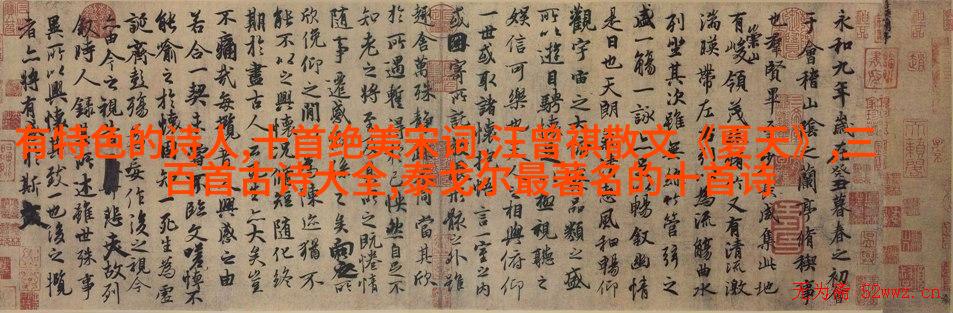 有特色的诗人,十首绝美宋词,汪曾祺散文《夏天》,三
百首古诗大全,泰戈尔最著名的十首诗
永和九年歲在癸丑暮春之初會
于會稽山陰之蘭亭脩禊事
也羣賢畢至少長咸集此地
有崇山峻領茂林脩竹又有清流激
湍暎帶左右引以為流觴曲水
列坐其次雖無絲竹管弦之
盛一觴一詠亦足以暢敘幽情
是日也天朗氣清惠風和暢仰
觀宇宙之大俯察品類之盛
所以遊目騁懷足以極視聽之
娛信可樂也夫人之相與俯仰
一世或取諸懷抱悟言一室之內
或因寄所託放浪形骸之外雖
趣舍萬殊靜躁不同當其欣
於所遇蹔得於己怏然自足不
知老之將至及其所之既惓情
隨事遷感慨係之矣向之所
欣俛仰之閒以為陳迹猶不
能不以之興懷況脩短隨化終
期於盡古人云死生亦大矣豈
不痛哉每攬昔人興感之由
若合一契未嘗不臨文嗟悼不
能喻之於懷固知一死生為虛
誕齊彭殤為妄作後之視今
亦由今之視昔悲夫故列
敘時人錄其所述雖世殊事
異所以興懷其致一也後之攬
者亦將有感於斯文
52wwz.cn